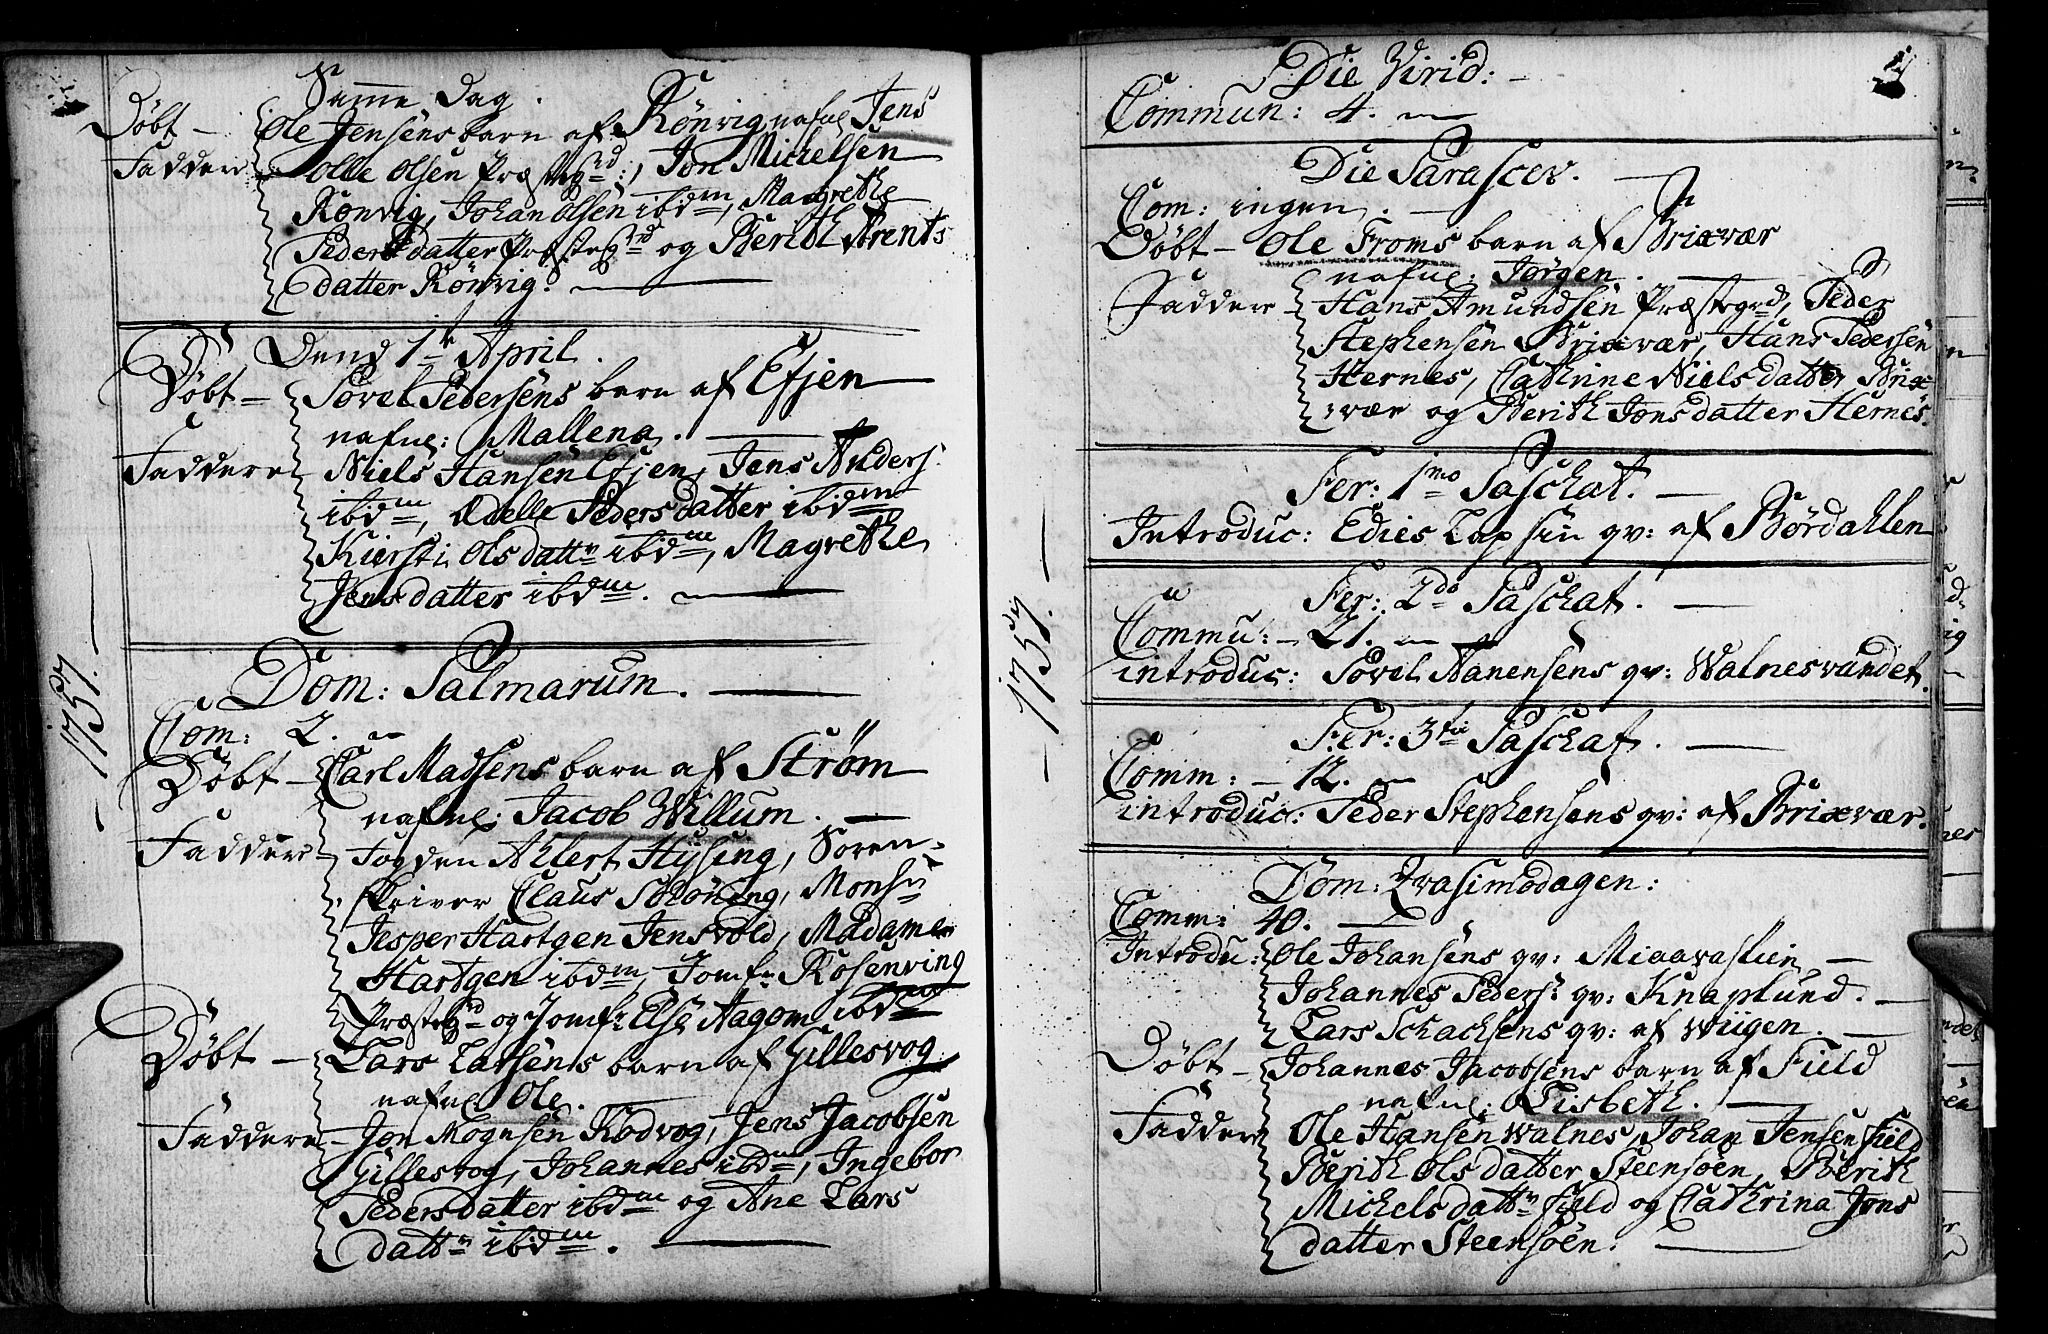 Samme Dag.
Døbt – Ole Jensens barn af Rönvig nafnl Jens
Faddere – Olle Olsen Præstegrd:, Jon Michelsen
Rönvig, Johan Olsen ibdm, Magrethe
Peders datter Præstegrd og Berith Arents
datter Rönvig. —
Dend 1te April.
Døbt – Povel Pedersens barn af Efjen
nafnl: Mallena. —
Faddere Niels Hansen Efjen, Jens Anders:
ibdm, Ædelle Peders datter ibdm
Kiersti Olsdattr ibdm, Magrethe
Jens datter ibdm. —
– 1757. –
Dom: Palmarum. —
Com: 2. –
Døbt – Carl Massens barn af Strøm
nafnl: Jacob Willum. —
Faddere – Fogden Ahlert Hysing, Soren-
skriver Claus Schöning, Monsr
Jesper Hartgen Jensvold, Madame
Hartgen ibdm, Jomfr Rosenving
Præstegrd og Jomfr Else Aagom ibdm
Døbt – Lars Larsens barn af Gillesvog
nafnl Ole. —
Faddere – Jon Mogensen Rödvog, Jens Jacobsen
Gillesvog, Johannes ibdm, Ingebor
Peders datter ibdm og Ane Lars
dattr ibdm. —
Die Virid: –
Commun: 4. –
Die Parascev. –
Com: ingen. –
Døbt – Ole Froms barn af Brixvær
nafnl: Jørgen. —
Faddere – Hans Amundsen Præstegrd, Peder
Stephensen Brixvær, Hans Pedersen
Hernes, Cathrine Niels datter Brix-
vær og Berith Jons datter Hernes.
Fer: 1mo Paschat. —
Introduc: Edies Lapsin qv: af Bördahlen
Fer: 2do Paschat. —
Commu: – 21. –
introduc: Povel Aanensens qv: Walnesvandet.
– 1757. –
Fer: 3tie Paschat. —
Comm: – 12. –
introduc: Peder Stephensens qv: af Brixvær.
Dom: Qvasimodagen:
Comm: 40. —
Introdu: Ole Johansens qv: –
Johannes Peders: qv: Knaplund. –
Lars Schachsens qv: af Wiigen. –
Døbt – Johannes Jacobsens barn af Field
nafnl: Lisbeth. —
Faddere Ole Hansen Walnes, Johan Jensen Field
Berith Ols datter Steensöen, Berith
Michels dattr Field og Cathrina Jons
datter Steensöen. —